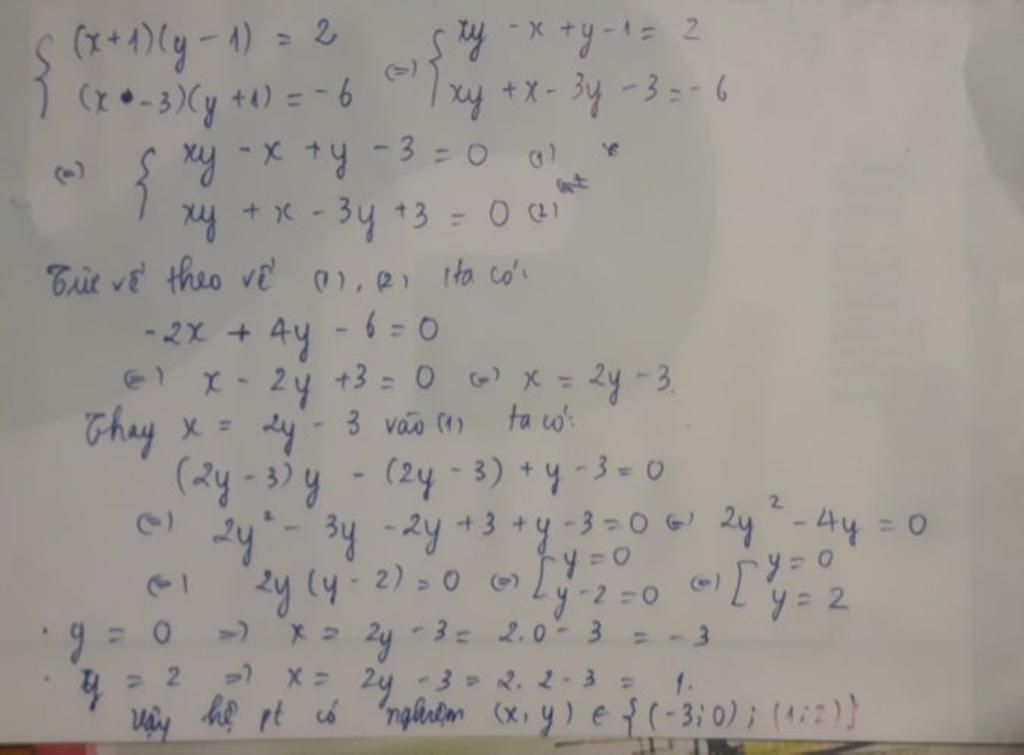 { (x+1)(y-1) = 2 (=) { xy - x + y - 1 = 2
(x - 3)(y + 1) = -6 xy + x - 3y - 3 = -6
(=) { xy - x + y - 3 = 0 (1)
xy + x - 3y + 3 = 0 (2)
Trừ vế theo vế (1), (2) ta có:
-2x + 4y - 6 = 0
(=) x - 2y + 3 = 0 (=) x = 2y - 3.
Thay x = 2y - 3 vào (1) ta có:
(2y - 3) y - (2y - 3) + y - 3 = 0
(=) 2y² - 3y - 2y + 3 + y - 3 = 0 (=) 2y² - 4y = 0
(=) 2y (y - 2) = 0 (=) [ y = 0 (=) [ y = 0
y - 2 = 0 y = 2
· y = 0 => x = 2y - 3 = 2.0 - 3 = -3
· y = 2 => x = 2y - 3 = 2.2 - 3 = 1.
Vậy hệ pt có nghiệm (x, y) ∈ {(-3; 0); (1; 2)}